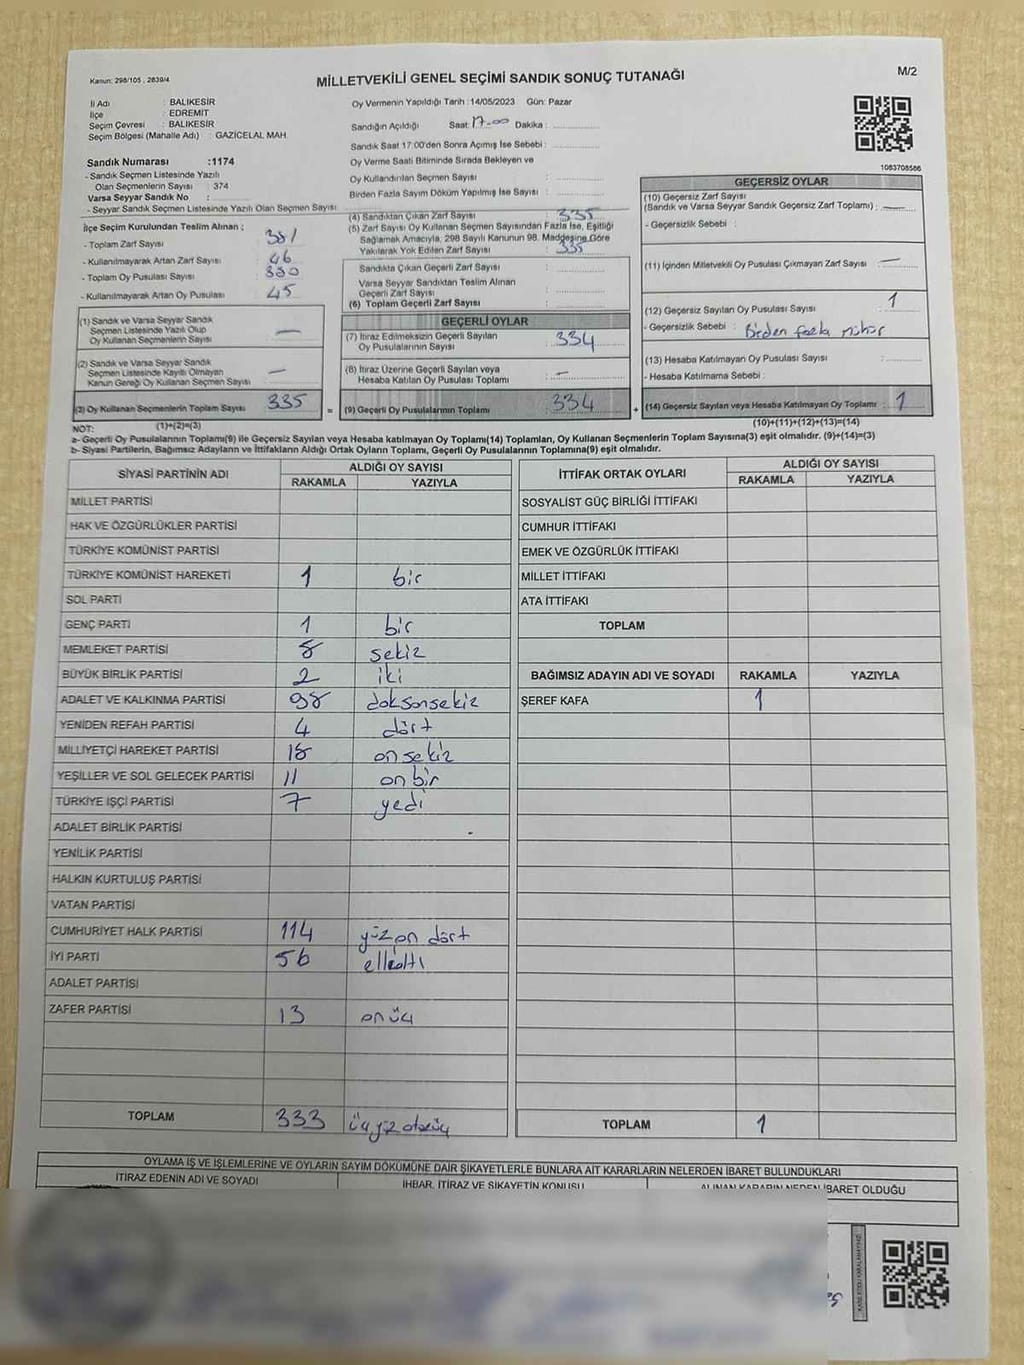 Kanun: 298/105 , 2839/4
MİLLETVEKİLİ GENEL SEÇİMİ SANDIK SONUÇ TUTANAĞI
M/2
İl Adı : BALIKESİR
İlçe : EDREMİT
Seçim Çevresi : BALIKESİR
Seçim Bölgesi (Mahalle Adı) : GAZİCELAL MAH.
Sandık Numarası :1174
- Sandık Seçmen Listesinde Yazılı
Olan Seçmenlerin Sayısı : 374
Varsa Seyyar Sandık No :
- Seyyar Sandık Seçmen Listesinde Yazılı Olan Seçmen Sayısı :
Oy Vermenin Yapıldığı Tarih :14/05/2023 Gün: Pazar
Sandığın Açıldığı Saat: 17.00 Dakika :
Sandık Saat 17:00'den Sonra Açımış İse Sebebi :
Oy Verme Saati Bitiminde Sırada Bekleyen ve
Oy Kullandırılan Seçmen Sayısı :
Birden Fazla Sayım Döküm Yapılmış İse Sayısı :
1083708586
İlçe Seçim Kurulundan Teslim Alınan ;
- Toplam Zarf Sayısı 381
- Kullanılmayarak Artan Zarf Sayısı : 46
- Toplam Oy Pusulası Sayısı : 380
- Kullanılmayarak Artan Oy Pusulası : 45
(1) Sandık ve Varsa Seyyar Sandık
Seçmen Listesinde Yazılı Olup
Oy Kullanan Seçmenlerin Sayısı : —
(2) Sandık ve Varsa Seyyar Sandık
Seçmen Listesinde Kayıtlı Olmayan
Kanun Gereği Oy Kullanan Seçmen Sayısı : —
(3) Oy Kullanan Seçmenlerin Toplam Sayısı : 335
(1)+(2)=(3)
(4) Sandıktan Çıkan Zarf Sayısı : 335
(5) Zarf Sayısı Oy Kullanan Seçmen Sayısından Fazla İse, Eşitliği
Sağlamak Amacıyla, 298 Sayılı Kanunun 98. Maddesine Göre
Yakılarak Yok Edilen Zarf Sayısı : 335
Sandıkta Çıkan Geçerli Zarf Sayısı :
Varsa Seyyar Sandıktan Teslim Alınan
Geçerli Zarf Sayısı :
(6) Toplam Geçerli Zarf Sayısı :
GEÇERLİ OYLAR
(7) İtiraz Edilmeksizin Geçerli Sayılan
Oy Pusulalarının Sayısı : 334
(8) İtiraz Üzerine Geçerli Sayılan veya
Hesaba Katılan Oy Pusulası Toplamı : —
= (9) Geçerli Oy Pusulalarının Toplamı : 334
GEÇERSİZ OYLAR
(10) Geçersiz Zarf Sayısı
(Sandık ve Varsa Seyyar Sandık Geçersiz Zarf Toplamı) : —
- Geçersizlik Sebebi :
(11) İçinden Milletvekili Oy Pusulası Çıkmayan Zarf Sayısı : —
(12) Geçersiz Sayılan Oy Pusulası Sayısı : 1
- Geçersizlik Sebebi : Birden fazla mühür
(13) Hesaba Katılmayan Oy Pusulası Sayısı :
- Hesaba Katılmama Sebebi :
+ (14) Geçersiz Sayılan veya Hesaba Katılmayan Oy Toplamı : 1
(10)+(11)+(12)+(13)=(14)
NOT:
a- Geçerli Oy Pusulalarının Toplamı(9) ile Geçersiz Sayılan veya Hesaba katılmayan Oy Toplamı(14) Toplamları, Oy Kullanan Seçmenlerin Toplam Sayısına(3) eşit olmalıdır. (9)+(14)=(3)
b- Siyasi Partilerin, Bağımsız Adayların ve İttifakların Aldığı Ortak Oyların Toplamı, Geçerli Oy Pusulalarının Toplamına(9) eşit olmalıdır.
SİYASİ PARTİNİN ADI ALDIĞI OY SAYISI
RAKAMLA YAZIYLA
MİLLET PARTİSİ
HAK VE ÖZGÜRLÜKLER PARTİSİ
TÜRKİYE KOMÜNİST PARTİSİ
TÜRKİYE KOMÜNİST HAREKETİ 1 bir
SOL PARTİ
GENÇ PARTİ 1 bir
MEMLEKET PARTİSİ 8 sekiz
BÜYÜK BİRLİK PARTİSİ 2 iki
ADALET VE KALKINMA PARTİSİ 98 doksansekiz
YENİDEN REFAH PARTİSİ 4 dört
MİLLİYETÇİ HAREKET PARTİSİ 18 onsekiz
YEŞİLLER VE SOL GELECEK PARTİSİ 11 onbir
TÜRKİYE İŞÇİ PARTİSİ 7 yedi
ADALET BİRLİK PARTİSİ
YENİLİK PARTİSİ
HALKIN KURTULUŞ PARTİSİ
VATAN PARTİSİ
CUMHURİYET HALK PARTİSİ 114 yüz on dört
İYİ PARTİ 56 ellialtı
ADALET PARTİSİ
ZAFER PARTİSİ 13 onüç
TOPLAM 333 üçyüz otuzüç
İTTİFAK ORTAK OYLARI ALDIĞI OY SAYISI
RAKAMLA YAZIYLA
SOSYALİST GÜÇ BİRLİĞİ İTTİFAKI
CUMHUR İTTİFAKI
EMEK VE ÖZGÜRLÜK İTTİFAKI
MİLLET İTTİFAKI
ATA İTTİFAKI
TOPLAM
BAĞIMSIZ ADAYIN ADI VE SOYADI RAKAMLA YAZIYLA
ŞEREF KAFA 1
TOPLAM 1
OYLAMA İŞ VE İŞLEMLERİNE VE OYLARIN SAYIM DÖKÜMÜNE DAİR ŞİKAYETLERLE BUNLARA AİT KARARLARIN NELERDEN İBARET BULUNDUKLARI
İTİRAZ EDENİN ADI VE SOYADI İHBAR, İTİRAZ VE ŞİKAYETİN KONUSU ALINAN KARARIN NEDEN İBARET OLDUĞU